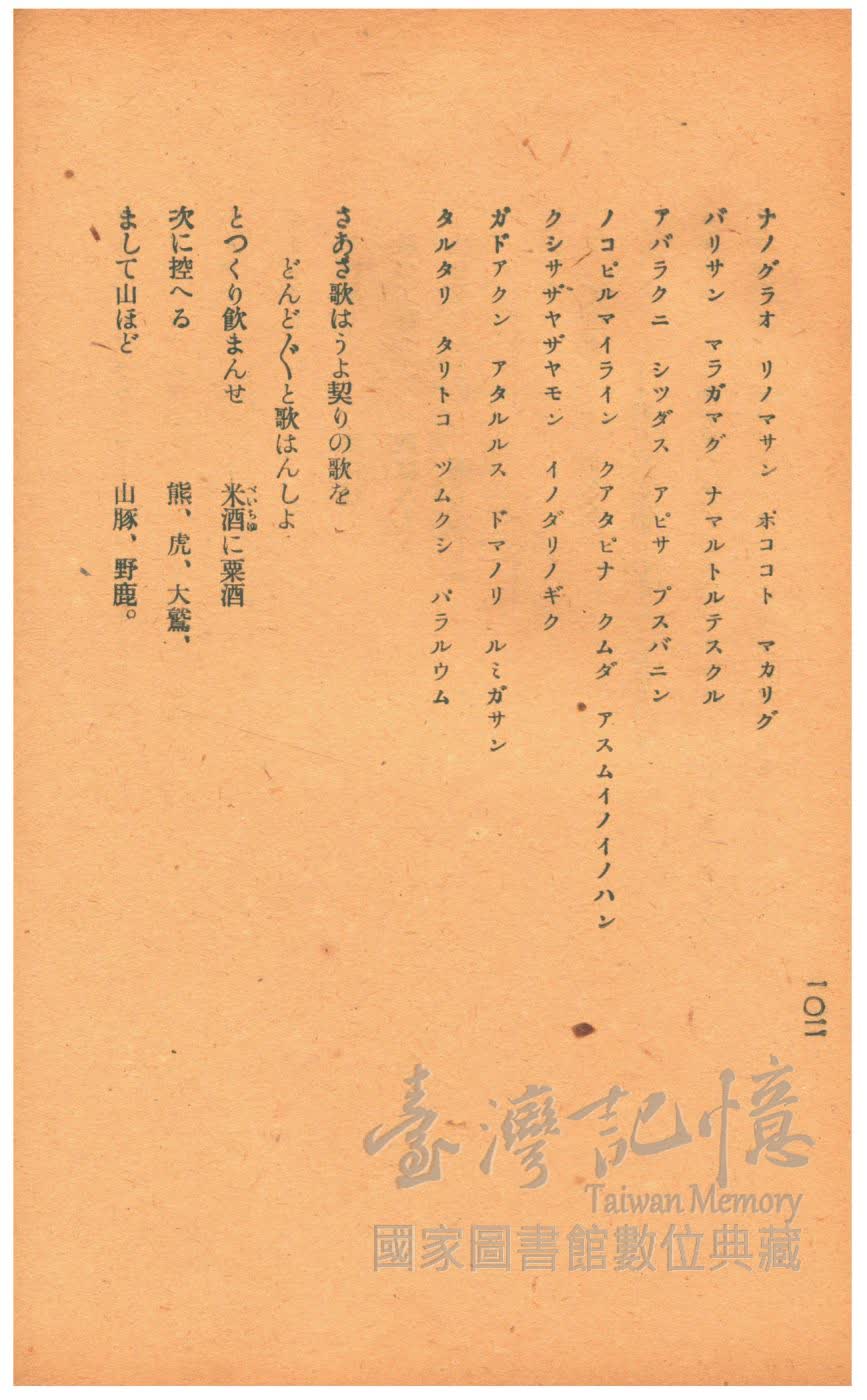 一〇二
ナノグラオ　リノマサン　ポココト　マカリグ
バリサン　マラガマグ　ナマルトルテスクル
アバラクニ　シツダス　アピサ　プスバニン
ノコピルマイライン　クアタピナ　クムダ　アスムイノイノハン
クシサザヤザヤモン　イノダリノギク
ガドアクン　アタルルス　ドマノリ　ルミガサン
タルタリ　タリトコ　ツムクシ　パラルウム
さあさ歌はうよ契りの歌を
どんど〱と歌はんしよ
とつくり飲まんせ　米酒に粟酒
べいちゆ
次に控へる　熊、虎、大鷲、
まして山ほど　山豚、野鹿。
臺灣記憶
Taiwan Memory
國家圖書館數位典藏